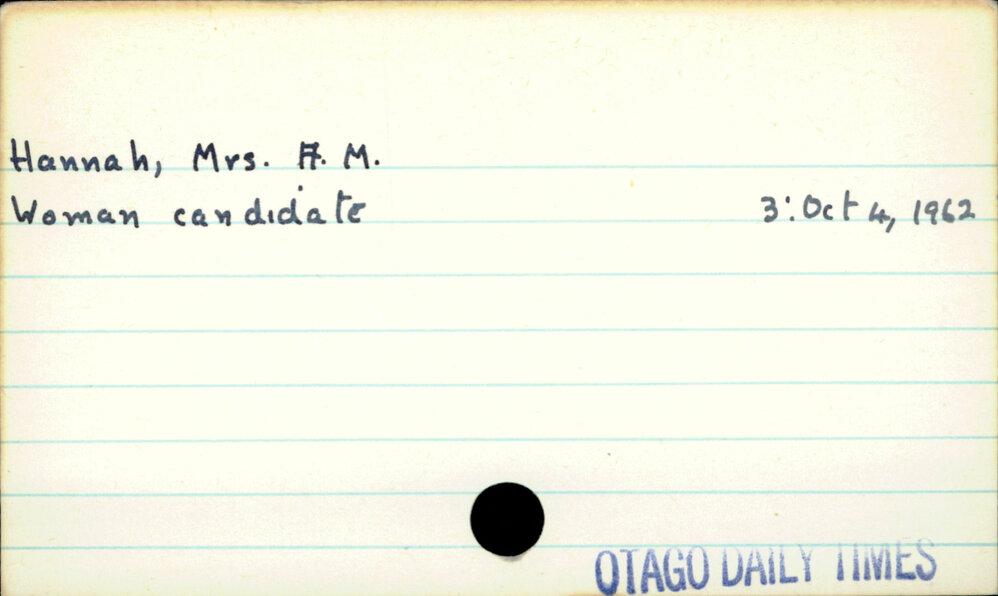 Hannah, Mrs. A. M.
Woman candidate 3: Oct 4, 1962
OTAGO DAILY TIMES